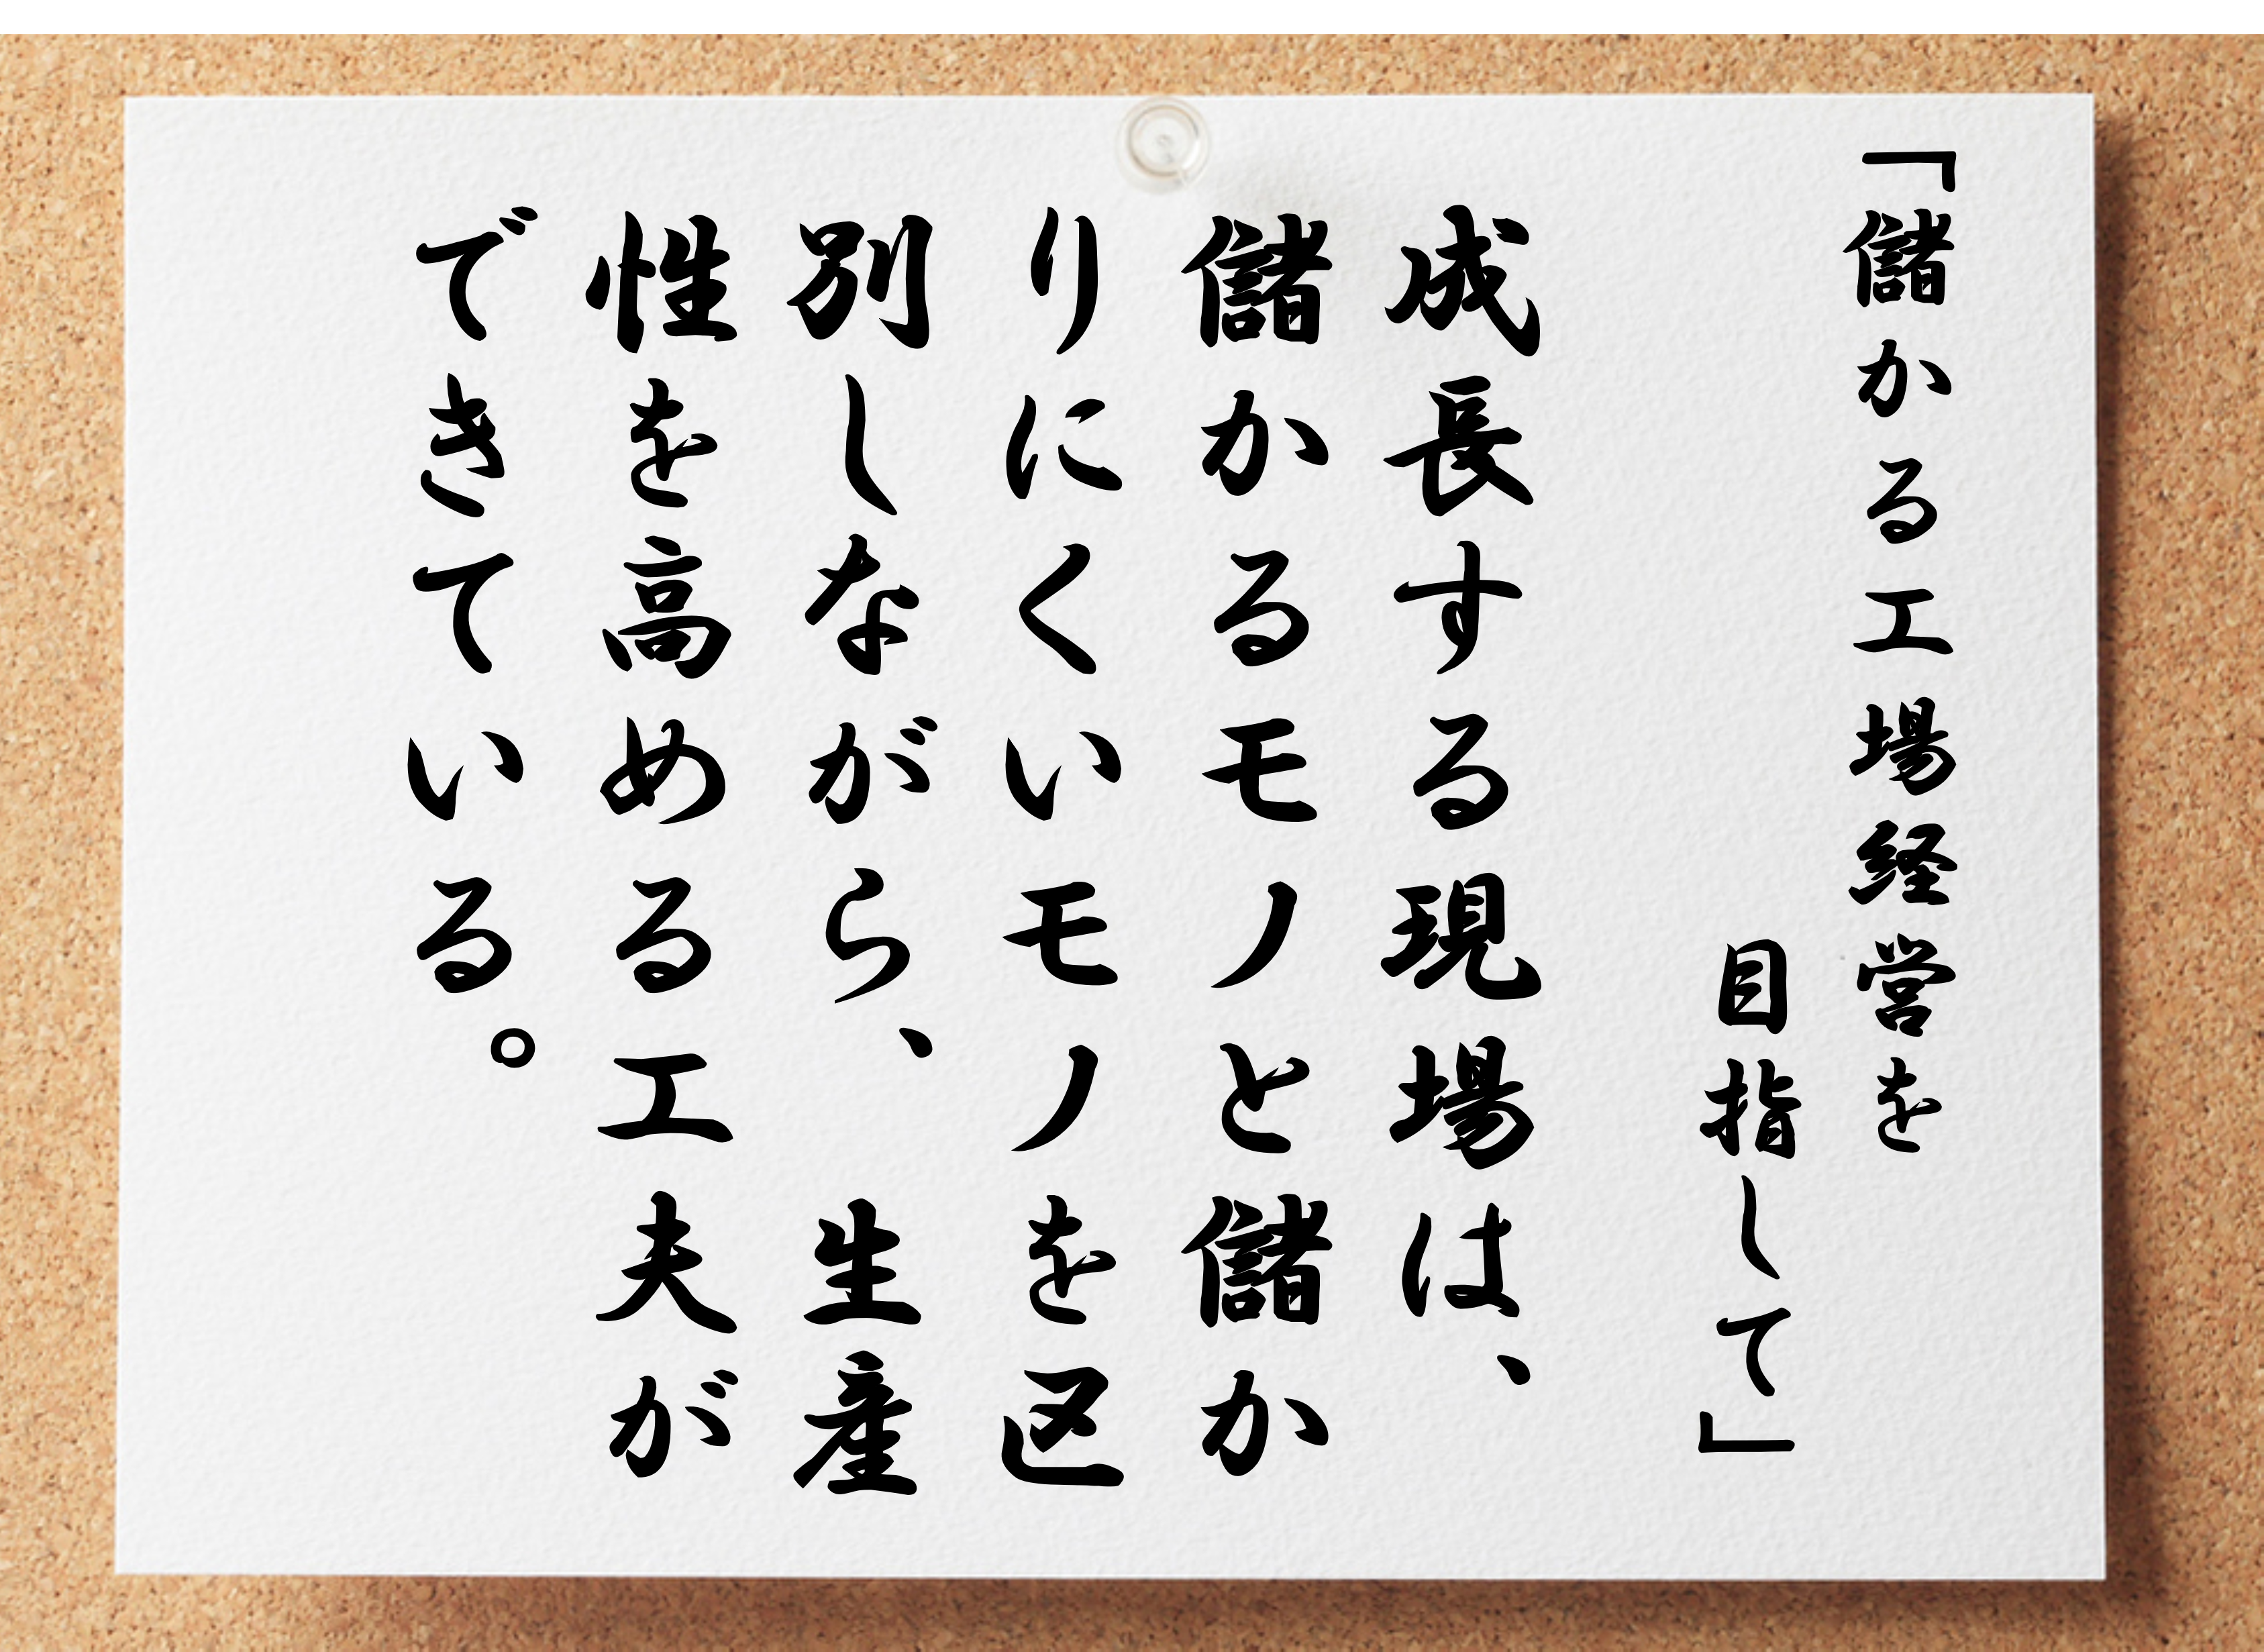 「儲かる工場経営を
目指して」
成長する現場は、
儲かるモノと儲か
りにくいモノを区
別しながら、生産
性を高める工夫が
できている。